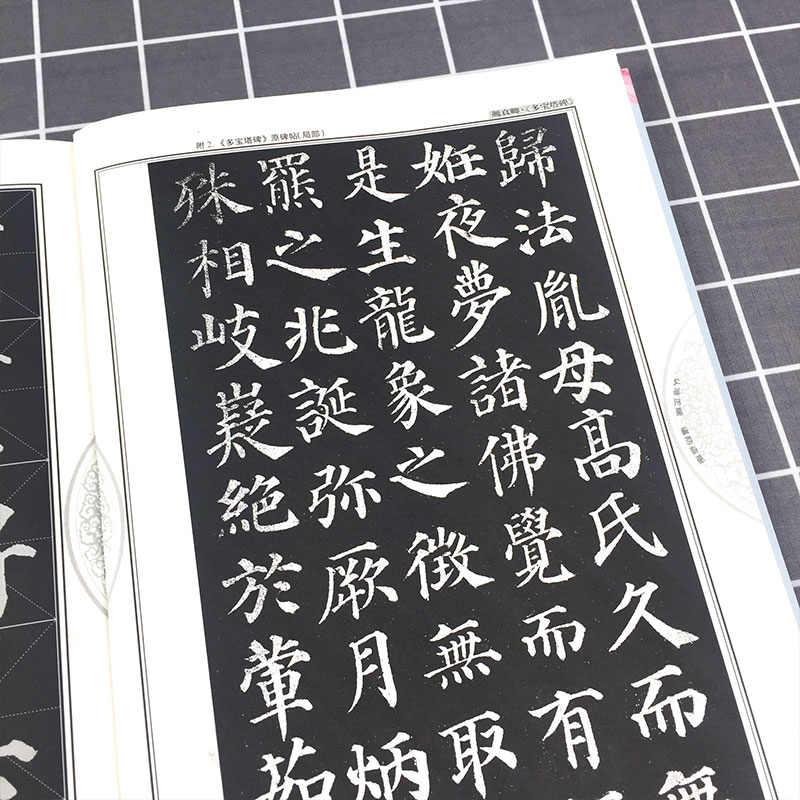 附2.《多宝塔碑》原碑帖(局部)
颜真卿·《多宝塔碑》
歸法胤母髙氏久而無
姙夜夢諸佛覺而有
是生龍象之徵無取
羆之兆誕弥厥月炳
殊相岐嶷絶於葷茹